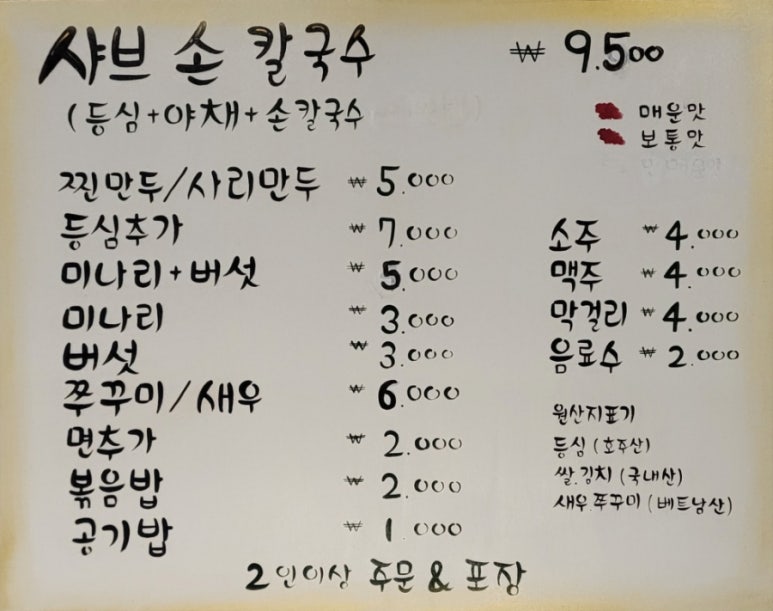 샤브 손 칼국수 ₩ 9.500
(등심+야채+손칼국수
매운맛
보통맛
찐만두/사리만두 ₩ 5.000
등심추가 ₩ 7.000
미나리+버섯 ₩ 5.000
미나리 ₩ 3.000
버섯 ₩ 3.000
쭈꾸미/새우 ₩ 6.000
면추가 ₩ 2.000
볶음밥 ₩ 2.000
공기밥 ₩ 1.000
소주 ₩ 4.000
맥주 ₩ 4.000
막걸리 ₩ 4.000
음료수 ₩ 2.000
원산지표기
등심(호주산)
쌀.김치(국내산)
새우.쭈꾸미(베트남산)
2인이상 주문 & 포장